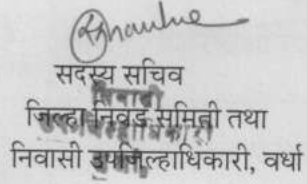 सदस्य सचिव
जिल्हा निवड समिती तथा
निवासी उपजिल्हाधिकारी, वर्धा